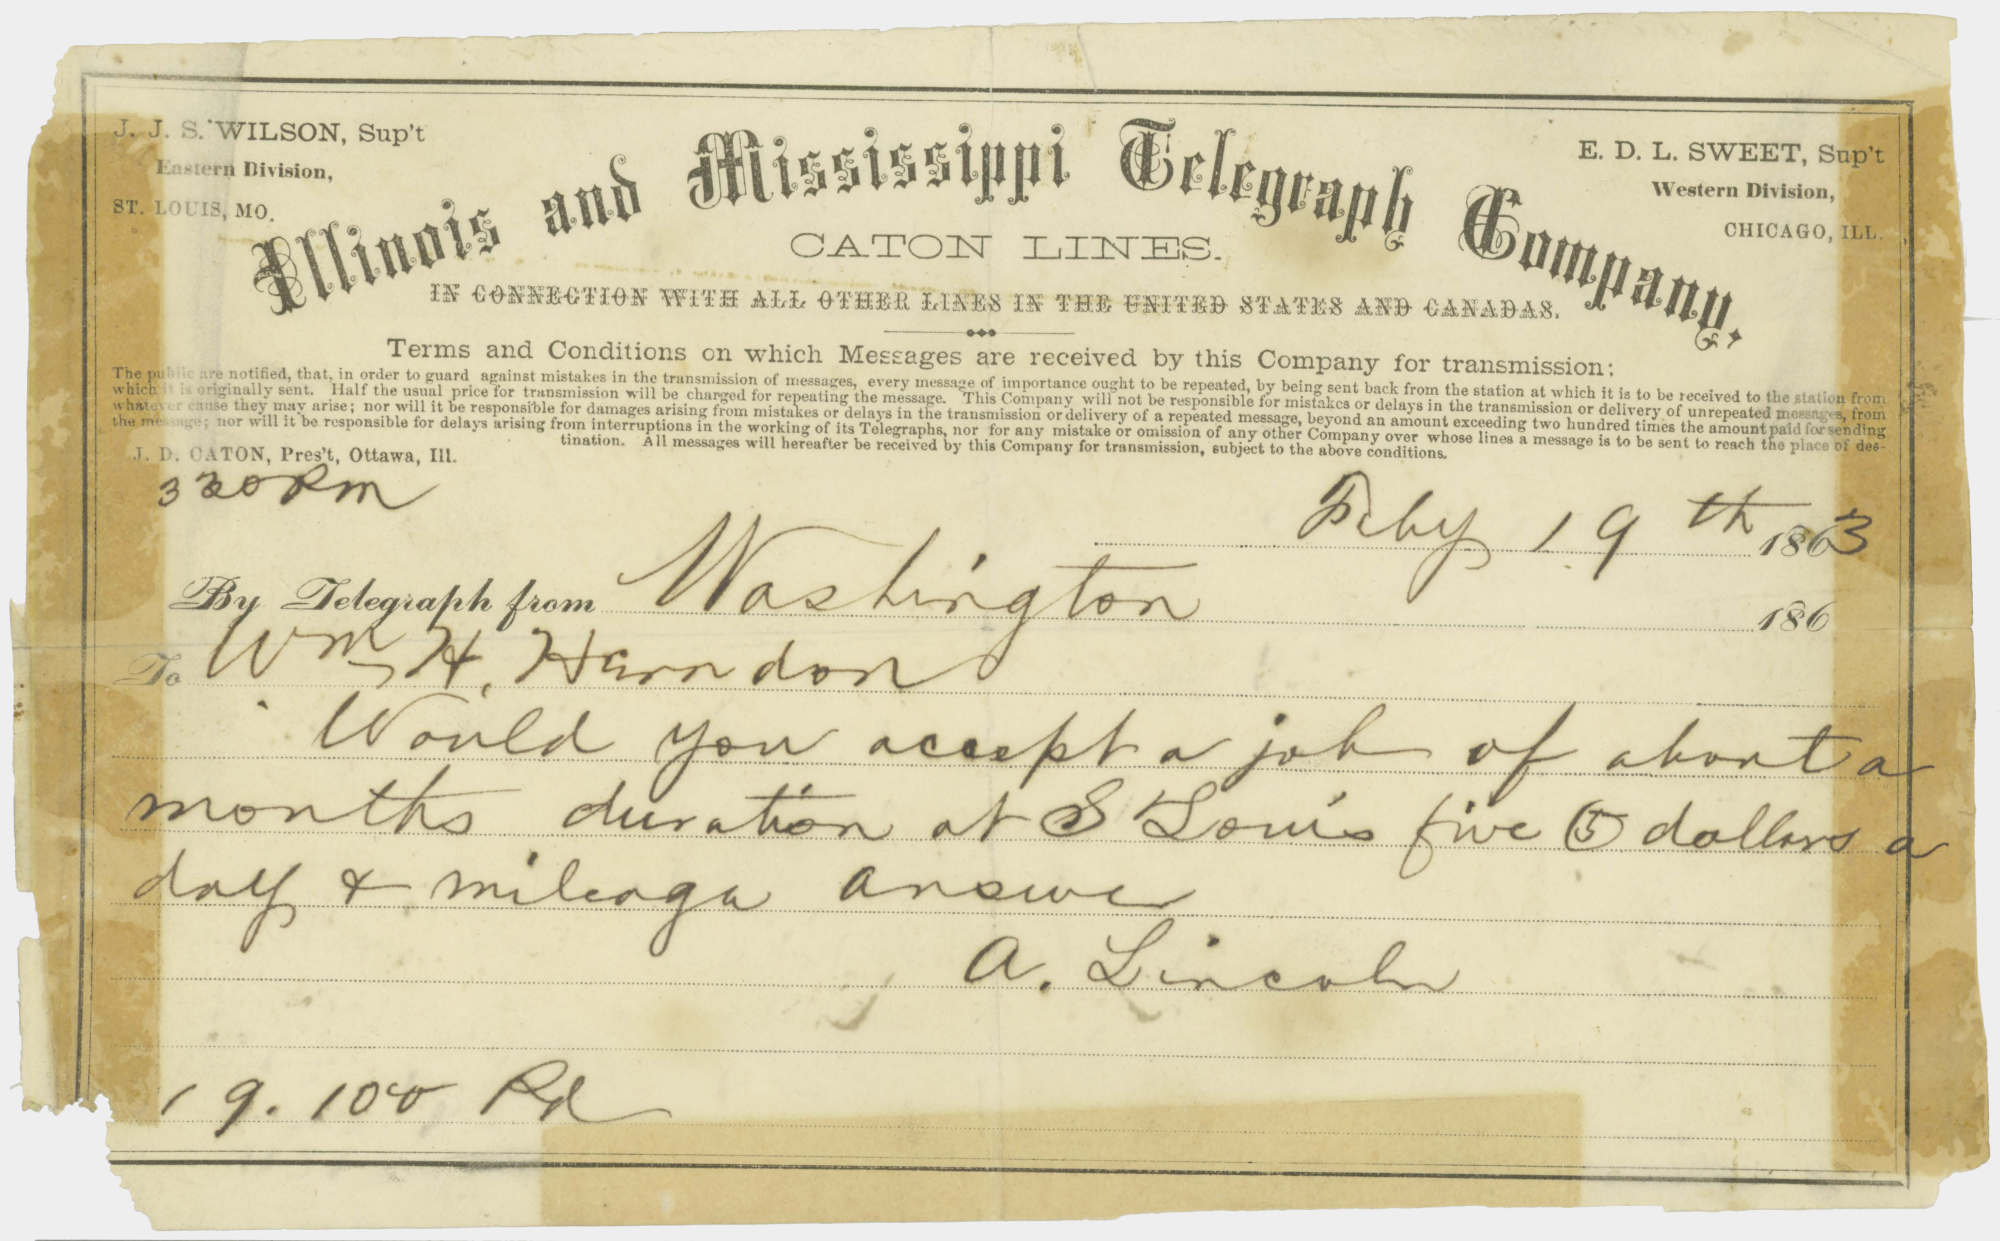 J. J. S. WILSON, Sup't
Eastern Division,
ST. LOUIS, MO.
E. D. L. SWEET, Sup't
Western Division,
CHICAGO, ILL.
Illinois and Mississippi Telegraph Company,
CATON LINES.
IN CONNECTION WITH ALL OTHER LINES IN THE UNITED STATES AND CANADAS.
Terms and Conditions on which Messages are received by this Company for transmission:
The public are notified, that, in order to guard against mistakes in the transmission of messages, every message of importance ought to be repeated, by being sent back from the station at which it is to be received to the station from
which it is originally sent. Half the usual price for transmission will be charged for repeating the message. This Company will not be responsible for mistakes or delays in the transmission or delivery of unrepeated messages, from
whatever cause they may arise; nor will it be responsible for damages arising from mistakes or delays in the transmission or delivery of a repeated message, beyond an amount exceeding two hundred times the amount paid for sending
the message; nor will it be responsible for delays arising from interruptions in the working of its Telegraphs, nor for any mistake or omission of any other Company over whose lines a message is to be sent to reach the place of des-
tination. All messages will hereafter be received by this Company for transmission, subject to the above conditions.
J. D. CATON, Pres't, Ottawa, Ill.
330 PM
Feby 19th 1863
By Telegraph from Washington 186
To Wm H. Harndon
Would you accept a job of about a
months duration at St Louis five (5) dollars a
day & mileage answer
A. Lincoln
19. 100 Pd